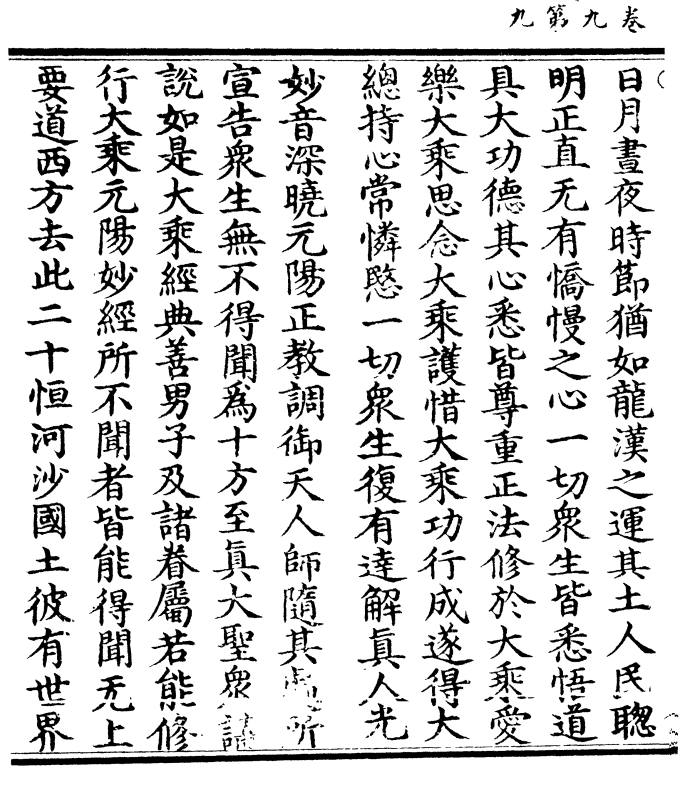 卷九第九
日月晝夜時節猶如龍漢之運其土人民聰
明正直无有憍慢之心一切衆生皆悉悟道
具大功德其心悉皆尊重正法修於大乘愛
樂大乘思念大乘護惜大乘功行成遂得大
總持心常憐愍一切衆生復有達解眞人光
妙音深曉元陽正教調御天人師隨其處所
宣告衆生無不得聞爲十方至眞大聖衆講
說如是大乘經典善男子及諸眷屬若能修
行大乘元陽妙經所不聞者皆能得聞无上
要道西方去此二十恒河沙國土彼有世界